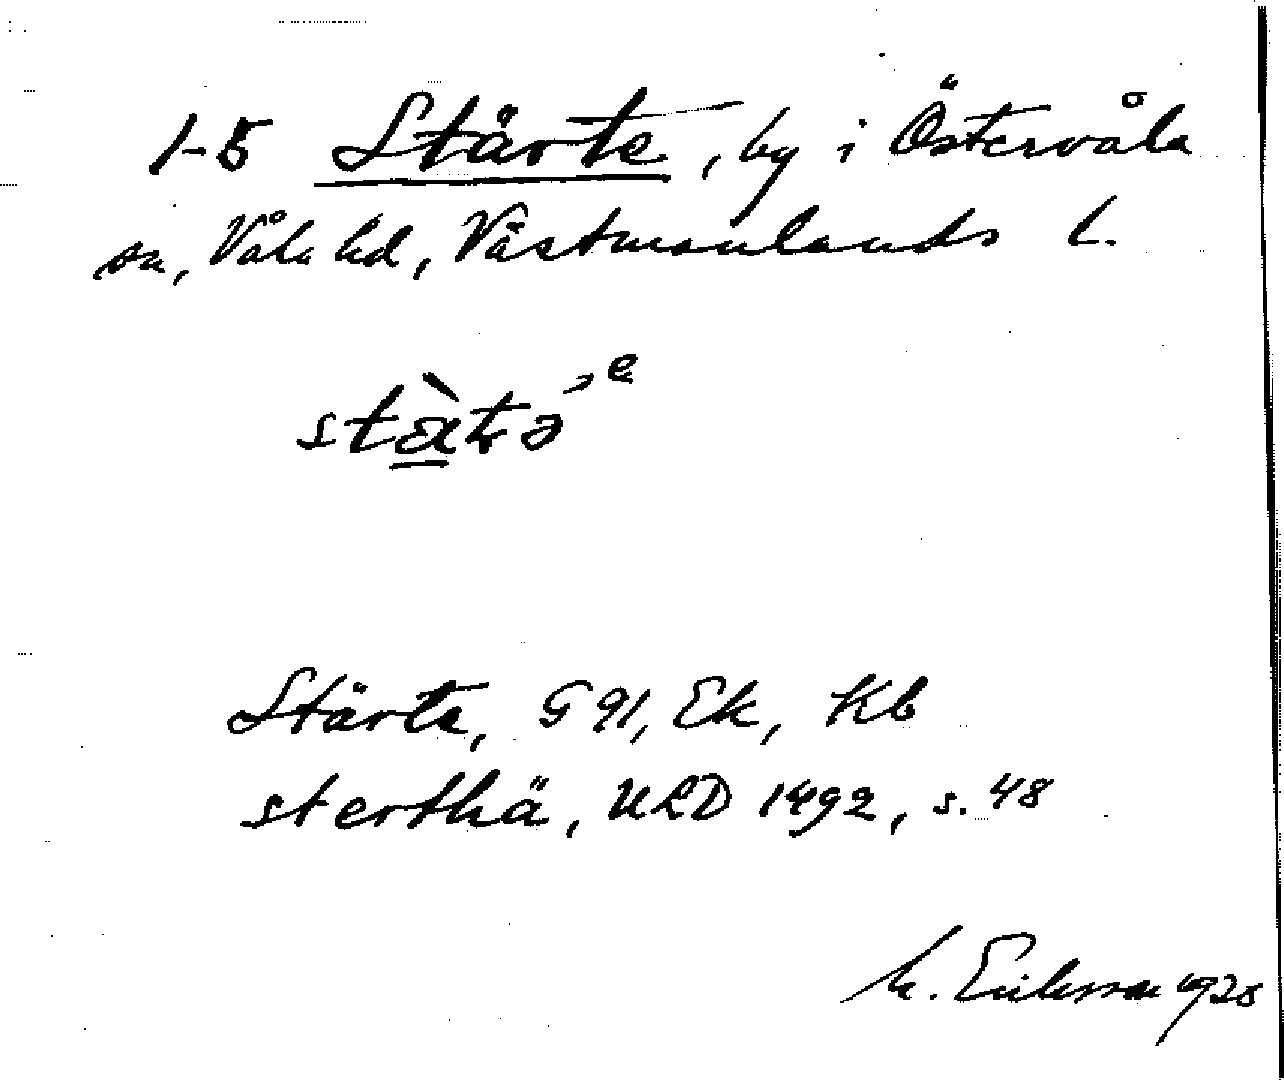 1-5 Stärte, by i Östervåla
sn, Våla hd, Västmanlands L.
stä̀tə´e
Stärte, G 91, Ek, Kb
sterthä, ULD 1492, s. 48
M. Eriksson 1928